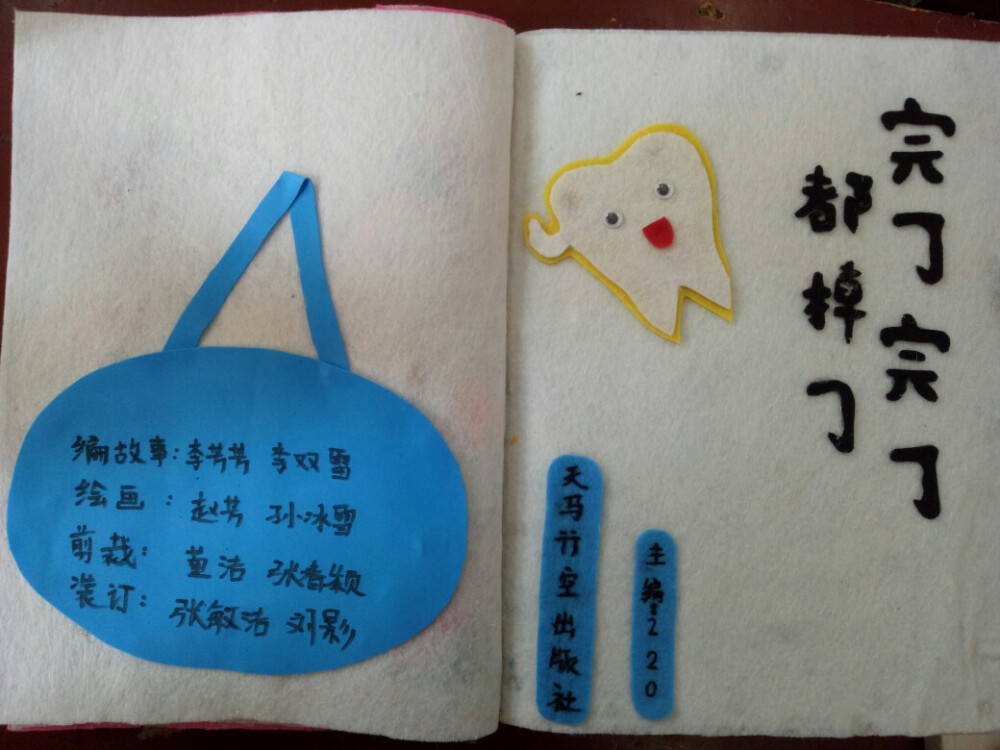 编故事:李芳芳 李双雪
绘画:赵芳 孙冰雪
剪裁:董洁 张春颖
装订:张敏洁 刘影
完了完了
都掉了
天马行空出版社
主编:220